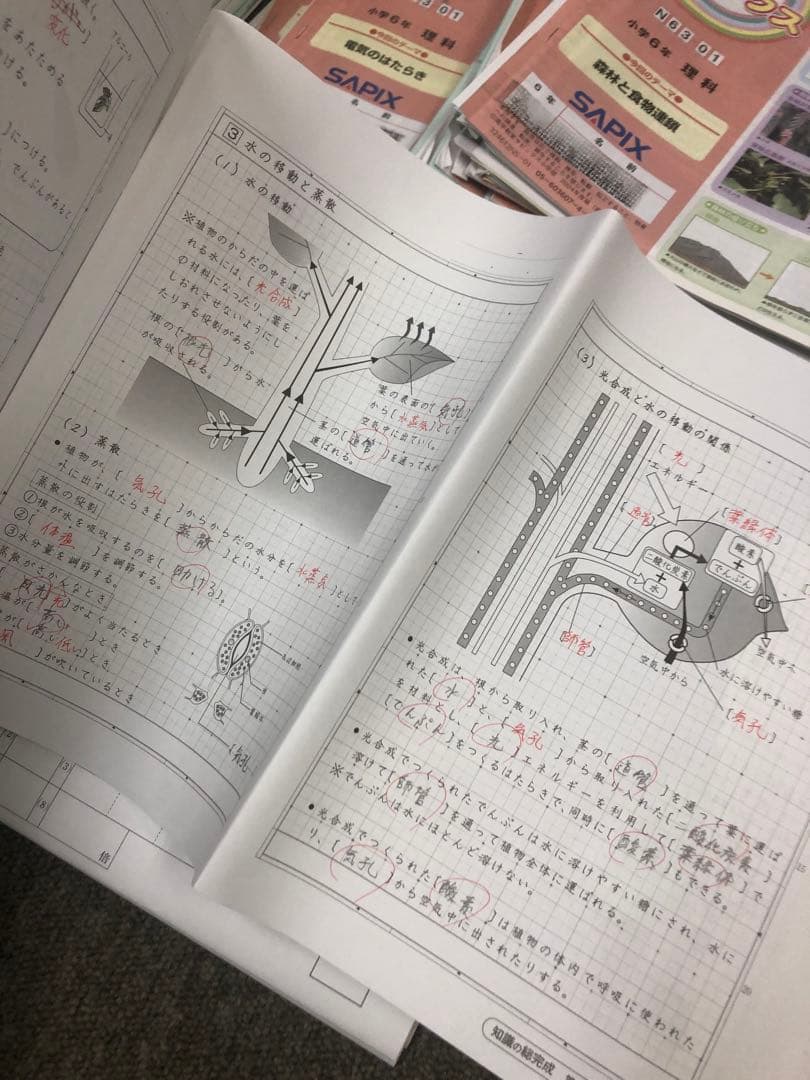 変化
アルコール
をあたためる
つける。
]につける。
でんぷんがあると
N63 01
小学6年 理科
●今回のテーマ●
電気のはたらき
SAPIX
6年
名前
N63 01
小学6年 理科
●今回のテーマ●
森林と食物連鎖
SAPIX
6年
名前
3 水の移動と蒸散
(1) 水の移動
※植物のからだの中を運ば
れる水には、[光合成]
の材料になったり、葉を
しおれさせないようにし
たりする役割がある。
根の[根毛]から水
が吸収される。
葉の表面の[気孔]
から[水蒸気]として
空気中に出ていく。
茎の[道管]を通って水が
運ばれる。
(2) 蒸散
●植物が、[気孔]からからだの水分を[水蒸気]として
外に出すはたらきを[蒸散]という。
蒸散の役割
①根が水を吸収するのを[助ける]。
②[体温]を調節する。
③水分量を調節する。
蒸散がさかんなとき
光]がよく当たるとき
温が[高い]とき
が[低い]とき
風]が吹いているとき
[気孔
(3) 光合成と水の移動の関係
[光]
エネルギー
[道管]
[葉緑体]
二酸化炭素
+
水
酸素
+
でんぷん
[師管]
空気中から
空気中へ
水に溶けやすい糖
[気孔]
●光合成は、根から取り入れ、茎の[道管]を通って葉に運ば
れた[水]と、[気孔]から取り入れた[二酸化炭素]
を材料とし、[光]エネルギーを利用して[葉緑体]で
[でんぷん]をつくるはたらきで、同時に[酸素]もできる。
●光合成でつくられたでんぷんは水に溶けやすい糖にされ、水に
溶けて[師管]を通って植物全体に運ばれる。
※でんぷんは水にほとんど溶けない。
●光合成でつくられた[酸素]は植物の体内で呼吸に使われた
り、[気孔]から空気中に出されたりする。
15
20
知識の総完成
3
8
倍